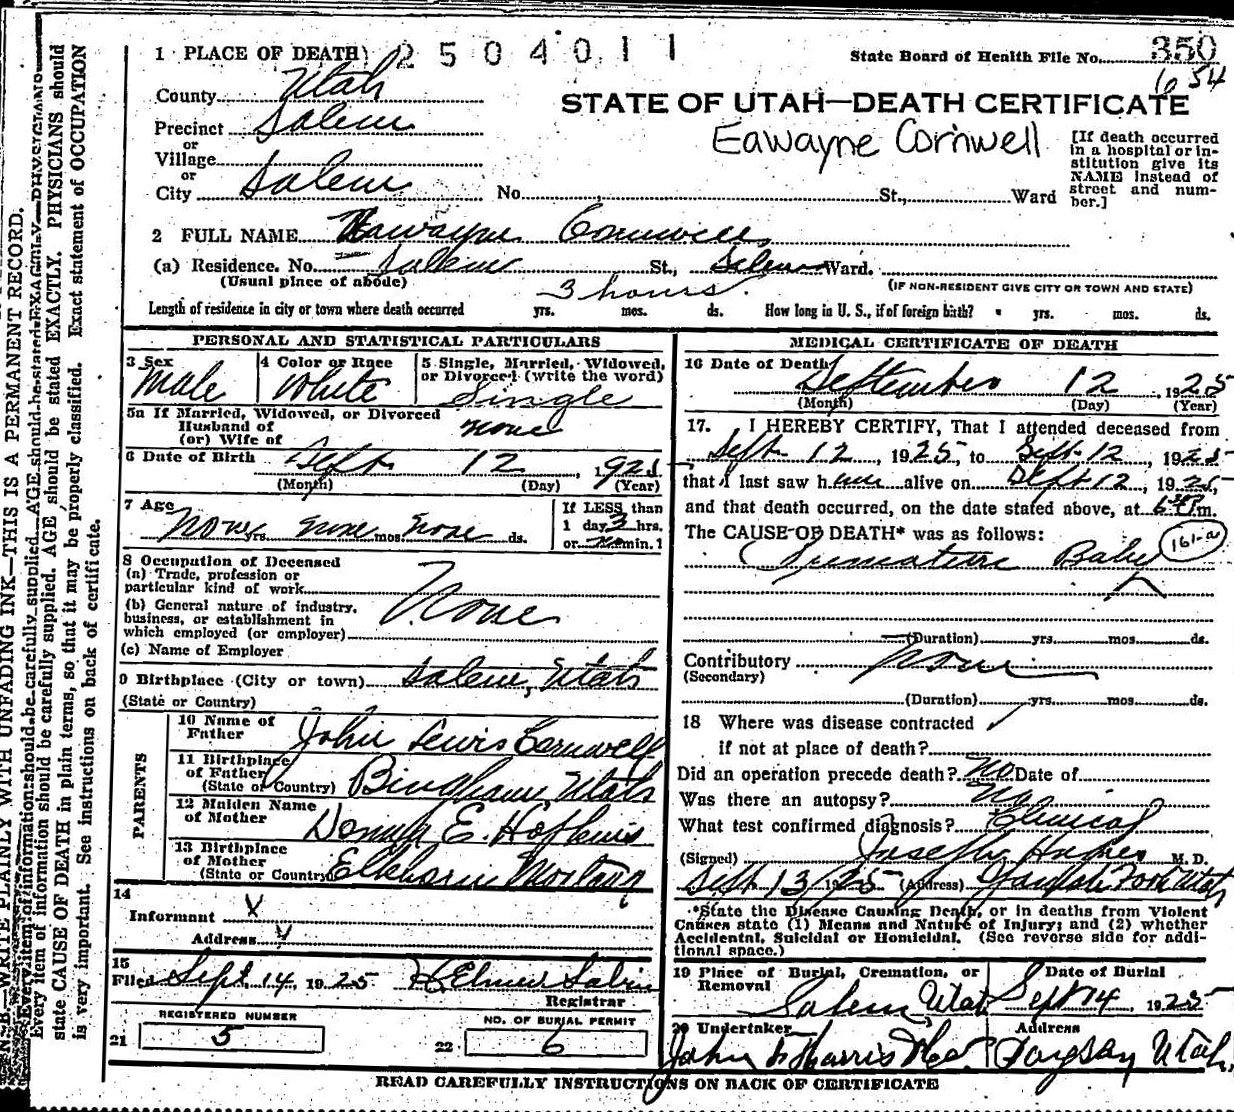 1 PLACE OF DEATH 2 5 0 4 0 1 1
State Board of Health File No. 350
654
County Utah
STATE OF UTAH—DEATH CERTIFICATE
Precinct Salem
or
Village
or
City Salem No. St., Ward
Eawayne Cornwell
[If death occurred
in a hospital or in-
stitution give its
NAME instead of
street and num-
ber.]
2 FULL NAME Eawayne Cornwell
(a) Residence. No. Salem St., Salem Ward.
(Usual place of abode)
(IF NON-RESIDENT GIVE CITY OR TOWN AND STATE)
3 hours
Length of residence in city or town where death occurred yrs. mos. ds. How long in U. S., if of foreign birth? yrs. mos. ds.
PERSONAL AND STATISTICAL PARTICULARS
3 Sex
Male
4 Color or Race
White
5 Single, Married, Widowed,
or Divorced (write the word)
Single
5a If Married, Widowed, or Divorced
Husband of
(or) Wife of
none
6 Date of Birth Sept 12, 1925
(Month) (Day) (Year)
7 Age
None yrs. none mos. none ds.
If LESS than
1 day 3 hrs.
or min.
8 Occupation of Deceased
(a) Trade, profession or
particular kind of work
(b) General nature of industry,
business, or establishment in
which employed (or employer)
None
(c) Name of Employer
9 Birthplace (City or town) Salem, Utah
(State or Country)
PARENTS
10 Name of
Father
John Lewis Cornwell
11 Birthplace
of Father
(State or Country)
Bingham, Utah
12 Maiden Name
of Mother
E. Hopkins
13 Birthplace
of Mother
(State or Country)
Elkhorn Montana
14
Informant X
Address
15
Filed Sept. 14 1925 H Elmer Sabin
Registrar
REGISTERED NUMBER
21 5
NO. OF BURIAL PERMIT
22 6
MEDICAL CERTIFICATE OF DEATH
16 Date of Death
September 12, 1925
(Month) (Day) (Year)
17. I HEREBY CERTIFY, That I attended deceased from
Sept 12, 1925, to Sept. 12, 1925
that I last saw him alive on Sept 12, 1925,
and that death occurred, on the date stated above, at m.
The CAUSE OF DEATH* was as follows:
Premature Baby 161-a
(Duration) yrs. mos. ds.
Contributory None
(Secondary)
(Duration) yrs. mos. ds.
18 Where was disease contracted
if not at place of death?
Did an operation precede death? No Date of
Was there an autopsy? No
What test confirmed diagnosis? Clinical
(Signed) Joseph Hughes M. D.
Sept 13, 1925 (Address) Spanish Fork Utah
*State the Disease Causing Death, or in deaths from Violent
Causes state (1) Means and Nature of Injury; and (2) whether
Accidental, Suicidal or Homicidal. (See reverse side for addi-
tional space.)
19 Place of Burial, Cremation, or
Removal
Salem, Utah
Date of Burial
Sept 14, 1925
20 Undertaker
Address
John Harris Payson Utah
READ CAREFULLY INSTRUCTIONS ON BACK OF CERTIFICATE
N. B.—WRITE PLAINLY WITH UNFADING INK—THIS IS A PERMANENT RECORD.
Every item of information should be carefully supplied. AGE should be stated EXACTLY. PHYSICIANS should
state CAUSE OF DEATH in plain terms, so that it may be properly classified. Exact statement of OCCUPATION
is very important. See instructions on back of certificate.